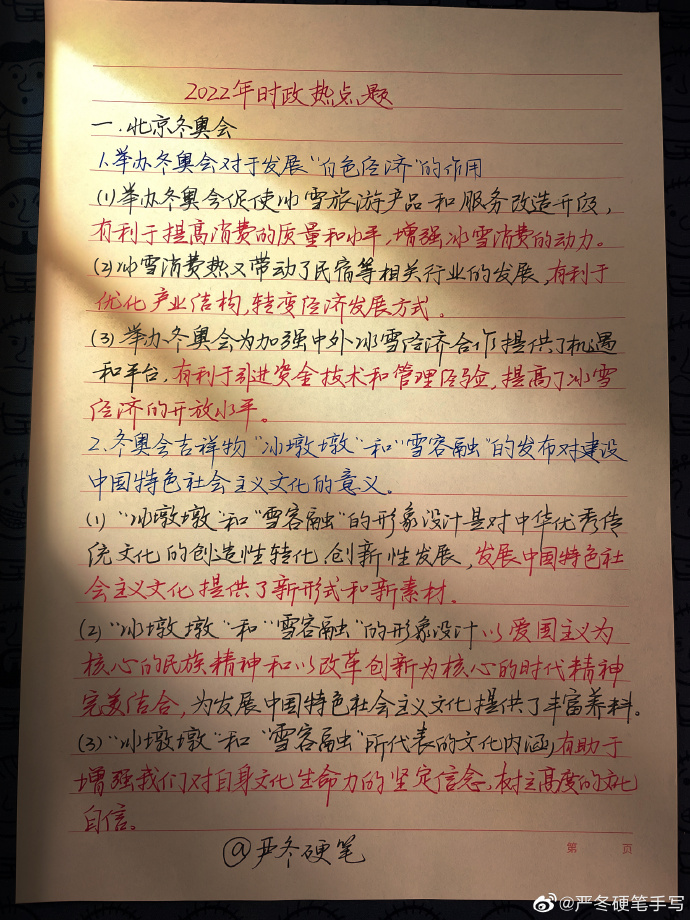 2022年时政热点题
一.北京冬奥会
1.举办冬奥会对于发展"白色经济"的作用
(1)举办冬奥会促使冰雪旅游产品和服务改造升级,
有利于提高消费的质量和水平,增强冰雪消费的动力。
(2)冰雪消费热又带动了民宿等相关行业的发展,有利于
优化产业结构,转变经济发展方式。
(3)举办冬奥会为加强中外冰雪经济合作提供了机遇
和平台,有利于引进资金技术和管理经验,提高了冰雪
经济的开放水平。
2.冬奥会吉祥物"冰墩墩"和"雪容融"的发布对建设
中国特色社会主义文化的意义。
(1)"冰墩墩"和"雪容融"的形象设计是对中华优秀传
统文化的创造性转化、创新性发展,发展中国特色社
会主义文化提供了新形式和新素材.
(2)"冰墩墩"和"雪容融"的形象设计以爱国主义为
核心的民族精神和以改革创新为核心的时代精神
完美结合,为发展中国特色社会主义文化提供了丰富养料。
(3)"冰墩墩"和"雪容融"所代表的文化内涵,有助于
增强我们对自身文化生命力的坚定信念,树立高度的文化
自信。
@严冬硬笔
第 页
@严冬硬笔手写